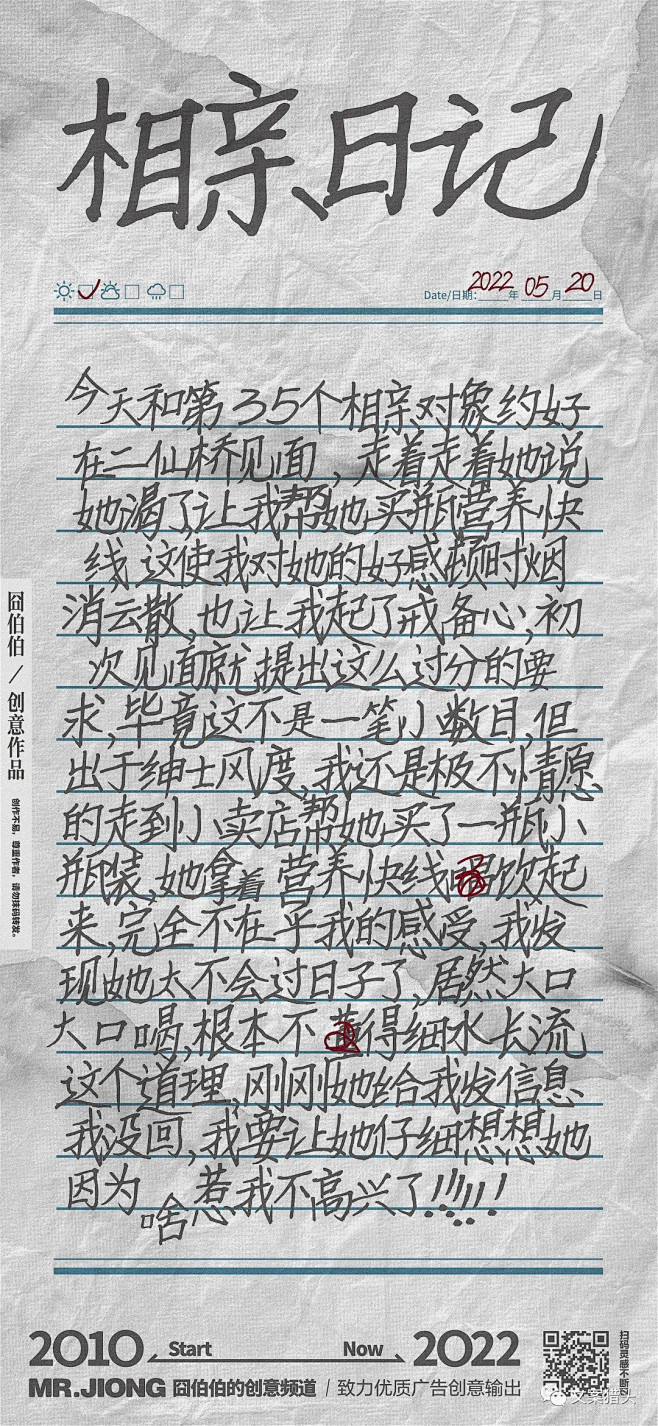 相亲日记
Date/日期: 2022 年 05 月 20 日
今天和第35个相亲对象约好
在二仙桥见面,走着走着她说
她渴了,让我帮她买瓶营养快
线 这使我对她的好感顿时烟
消云散,也让我起了戒备心,初
次见面就提出这么过分的要
求,毕竟这不是一笔小数目,但
出于绅士风度,我还是极不情愿
的走到小卖店帮她买了一瓶小
瓶装,她拿着营养快线 饮起
来,完全不在乎我的感受,我发
现她太不会过日子了,居然大口
大口喝,根本不 得细水长流
这个道理,刚刚她给我发信息
我没回,我要让她仔细想想她
因为啥惹我不高兴了!!!!!!
囧伯伯/创意作品
创作不易,尊重作者,请勿抹码转发。
2010 Start Now 2022
MR.JIONG 囧伯伯的创意频道/致力优质广告创意输出
扫码灵感不断
文案猎头